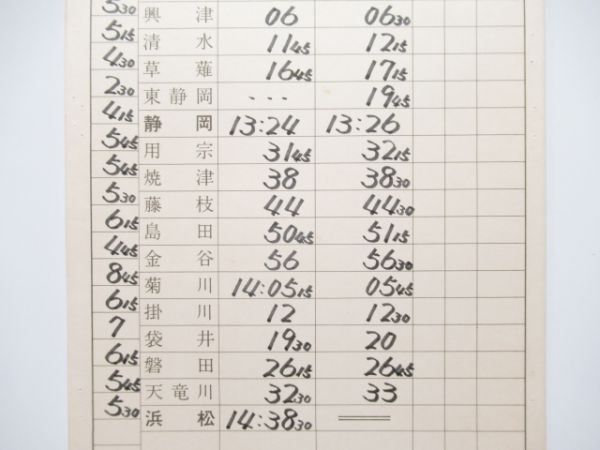 5 30 興津 06 06 30
5 15 清水 11 45 12 15
4 30 草薙 16 45 17 15
2 30 東静岡 ・・・ 19 45
4 15 静岡 13:24 13:26
5 45 用宗 31 45 32 15
5 45 焼津 38 38 30
5 30 藤枝 44 44 30
6 15 島田 50 45 51 15
4 45 金谷 56 56 30
8 45 菊川 14:05 15 05 45
6 15 掛川 12 12 30
7 袋井 19 30 20
6 15 磐田 26 15 26 45
5 45 天竜川 32 30 33
5 30 浜松 14:38 30